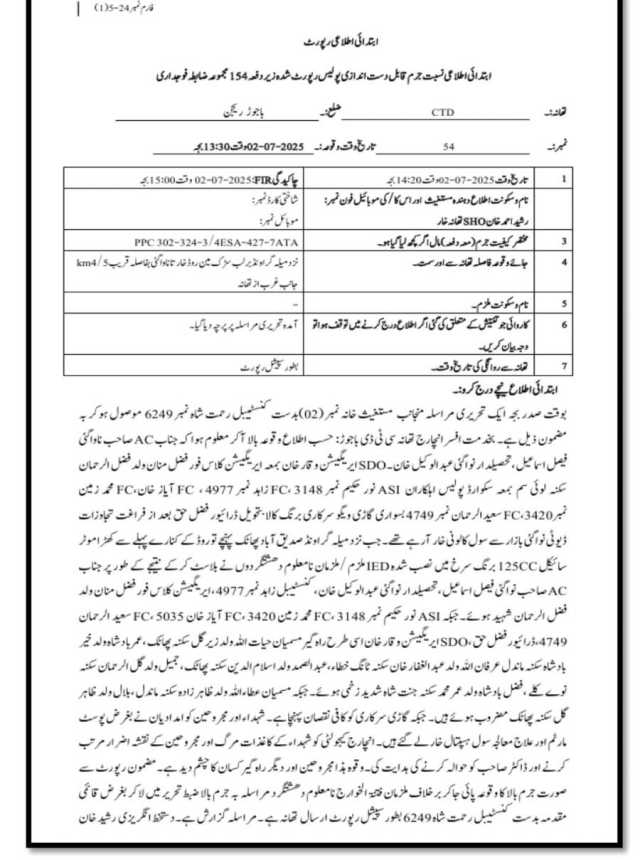 فارم نمبر 24-5(1)
ابتدائی اطلاعی رپورٹ
ابتدائی اطلاعی نسبت جرم قابل دست اندازی پولیس رپورٹ شدہ زیر دفعہ 154 مجموعہ ضابطہ فوجداری
تھانہ:۔ CTD ضلع:۔ باجوڑ ریجن
نمبر:۔ 54 تاریخ وقت وقوعہ:۔ 02-07-2025 وقت 13:30 بجے
1 تاریخ وقت 02-07-2025 وقت 14:20 بجے چاکیدگی FIR: 02-07-2025 وقت 15:00 بجے
نام و سکونت اطلاع دہندہ مستغیث اور اس کا/کی موبائیل فون نمبر: شناختی کارڈ نمبر:
رشید احمد خان SHO تھانہ خار موبائل نمبر:
3 مختصر کیفیت جرم (معہ دفعہ) مال اگر کچھ لیا گیا ہو۔ PPC 302-324-3/4ESA-427-7ATA
4 جائے وقوعہ فاصلہ تھانہ سے اور سمت۔ نزد میلہ گراونڈ بر لب سڑک مین روڈ خار تا ناواگئی بفاصلہ قریب 4/5km
جانب غرب از تھانہ
5 نام و سکونت ملزم۔ –
6 کاروائی جو تفتیش کے متعلق کی گئی اگر اطلاع درج کرنے میں توقف ہوا تو آمدہ تحریری مراسلہ پر پرچہ دیا گیا۔
وجہ بیان کریں۔
7 تھانہ سے روانگی کی تاریخ وقت۔ بطور سپیشل رپورٹ
ابتدائی اطلاع نیچے درج کرو:۔
بوقت صدر بجہ ایک تحریری مراسلہ منجانب مستغیث خانہ نمبر (02) بدست کنسٹیبل رحمت شاہ نمبر 6249 موصول ہو کر بہ
مضمون ذیل ہے۔ بخدمت افسر انچارج تھانہ سی ٹی ڈی باجوڑ: حسب اطلاع وقوعہ بالا آکر معلوم ہوا کہ جناب AC صاحب ناواگئی
فیصل اسماعیل، تحصیلدار ناواگئی عبدالوکیل خان۔ SDO ایریگیشن وقار خان بمعہ ایریگیشن کلاس فور فضل منان ولد فضل الرحمان
سکنہ لوئی سم بمعہ سکوارڈ پولیس اہلکاران ASI نور حکیم نمبر 3148 ،FC زاہد نمبر 4977 ، FC آیاز خان، FC محمد زمین
نمبر 3420،FC سعید الرحمان نمبر 4749 بسواری گاڑی ویگو سرکاری برنگ کالا بتحویل ڈرائیور فضل حق بعد از فراغت تجاوزات
ڈیوٹی ناواگئی بازار سے سول کالونی خار آرہے تھے۔ جب نزد میلہ گراونڈ صدیق آباد پھاٹک پہنچے تو روڈ کے کنارے پہلے سے کھڑا موٹر
سائیکل 125CC برنگ سرخ میں نصب شدہ IED ملزم / ملزمان نامعلوم دھشتگردوں نے بلاسٹ کر کے نتیجے کے طور پر جناب
AC صاحب ناواگئی فیصل اسماعیل، تحصیلدار ناواگئی عبدالوکیل خان، کنسٹیبل زاہد نمبر 4977، ایریگیشن کلاس فور فضل منان ولد
فضل الرحمان شہید ہوئے۔ جبکہ ASI نور حکیم نمبر 3148 ،FC محمد زمین 3420 ،FC آیاز خان 5035 ،FC سعید الرحمان
4749، ڈرائیور فضل حق، SDO ایریگیشن وقار خان اسی طرح راہ گیر مسمیان حیات اللہ ولد زیر گل سکنہ پھاٹک، عمر بادشاہ ولد خیر
بادشاہ سکنہ ماندل عرفان اللہ ولد عبدالغفار خان سکنہ ٹانگ خطاء، عبدالصمد ولد اسلام الدین سکنہ پھاٹک، جمیل ولد گل الرحمان سکنہ
نوے کلے، فضل بادشاہ ولد عمر محمد سکنہ جنت شاہ شدید زخمی ہوئے۔ جبکہ مسمیان عطاء اللہ ولد ظاہر زادہ سکنہ ماندل، بلال ولد ظاہر
گل سکنہ پھاٹک مضروب ہوئے ہیں۔ جبکہ گاڑی سرکاری کو کافی نقصان پہنچا ہے۔ شہداء اور مجروحین کو امدادیان نے بغرض پوسٹ
مارٹم اور علاج معالجہ سول ہسپتال خار لے گئے ہیں۔ انچارج کیجولٹی کو شہداء کے کاغذات مرگ اور مجروحین کے نقشہ اضرار مرتب
کرنے اور ڈاکٹر صاحب کو حوالہ کرنے کی ہدایت کی۔ وقوعہ ہذا مجروحین اور دیگر راہ گیر کسان کا چشم دید ہے۔ مضمون رپورٹ سے
صورت جرم بالا کا وقوعہ پائی جاکر برخلاف ملزمان فتنۃ الخوارج نامعلوم دھشتگرد مراسلہ بہ جرم بالا ضبط تحریر میں لا کر بغرض قائمی
مقدمہ بدست کنسٹیبل رحمت شاہ 6249 بطور سپیشل رپورٹ ارسال تھانہ ہے۔ مراسلہ گزارش ہے۔ دستخط انگریزی رشید خان